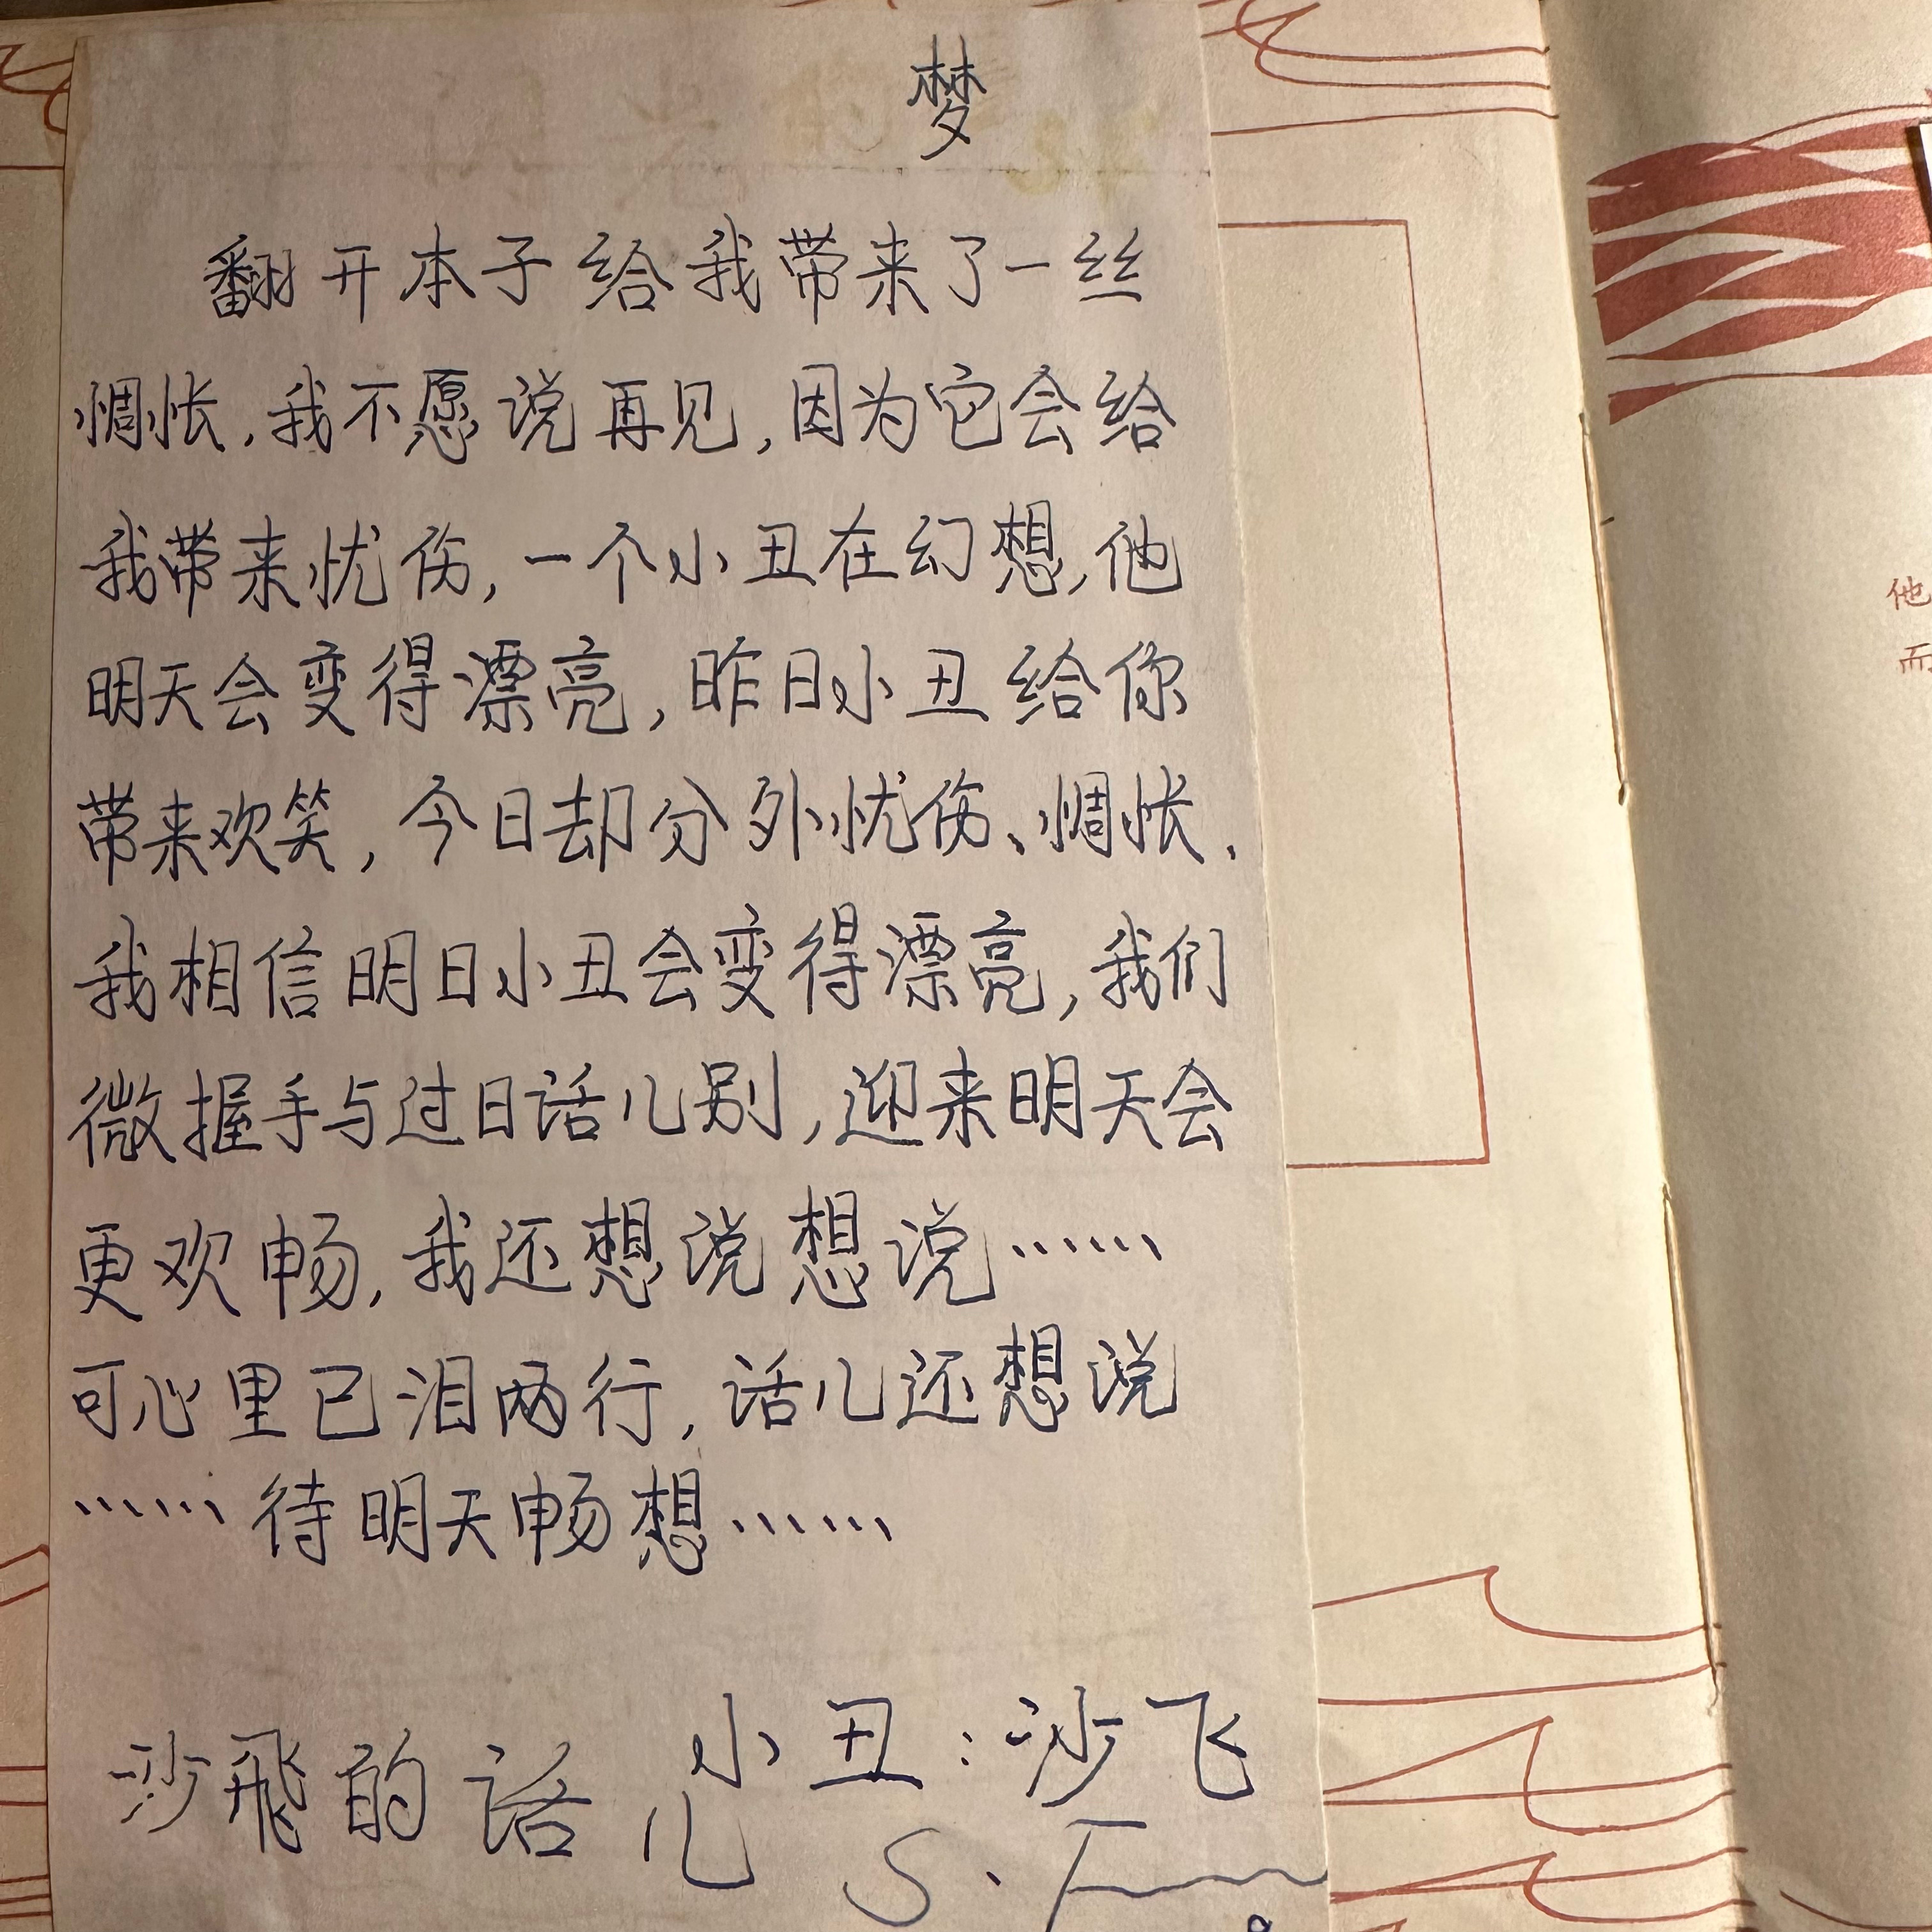 梦
翻开本子给我带来了一丝
惆怅,我不愿说再见,因为它会给
我带来忧伤,一个小丑在幻想,他
明天会变得漂亮,昨日小丑给你
带来欢笑,今日却分外忧伤、惆怅,
我相信明日小丑会变得漂亮,我们
微握手与过日话儿别,迎来明天会
更欢畅,我还想说想说……
可心里已泪两行,话儿还想说
……待明天畅想……
小丑:沙飞
沙飛的话儿
他
而